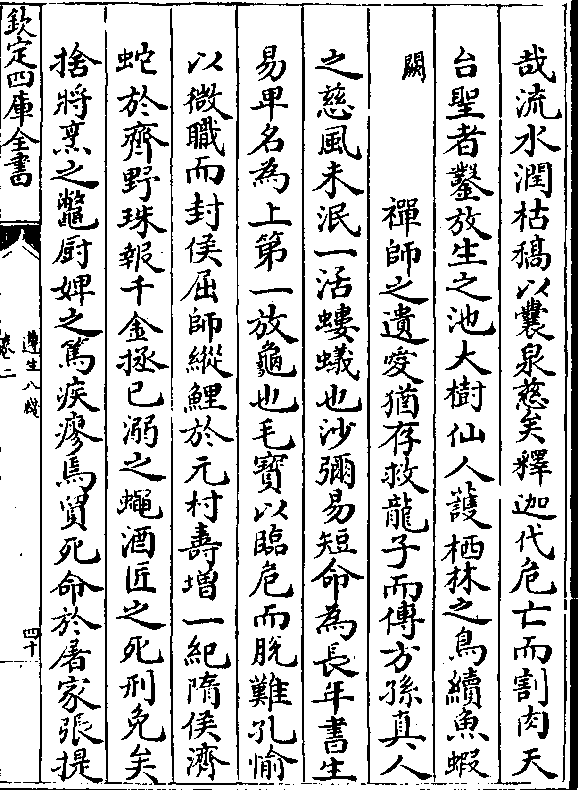 哉流水潤枯槁以囊泉慈矣釋迦代危亡而割肉天
台聖者鑿放生之池大樹仙人護栖林之鳥續魚蝦
闕　　禪師之遺愛猶存救龍子而傳方孫真人
之慈風未泯一活螻蟻也沙彌易短命為長年書生
易甲名為上第一放龜也毛寶以臨危而脫難孔愉
以微職而封侯屈師縱鯉於元村壽增一紀隋侯濟
蛇於齊野珠報千金拯已溺之蠅酒匠之死刑免矣
捨將烹之鼈厨婢之篤疾瘳焉貿死命於屠家張提
欽定四庫全書
遵生八牋
卷二
四十